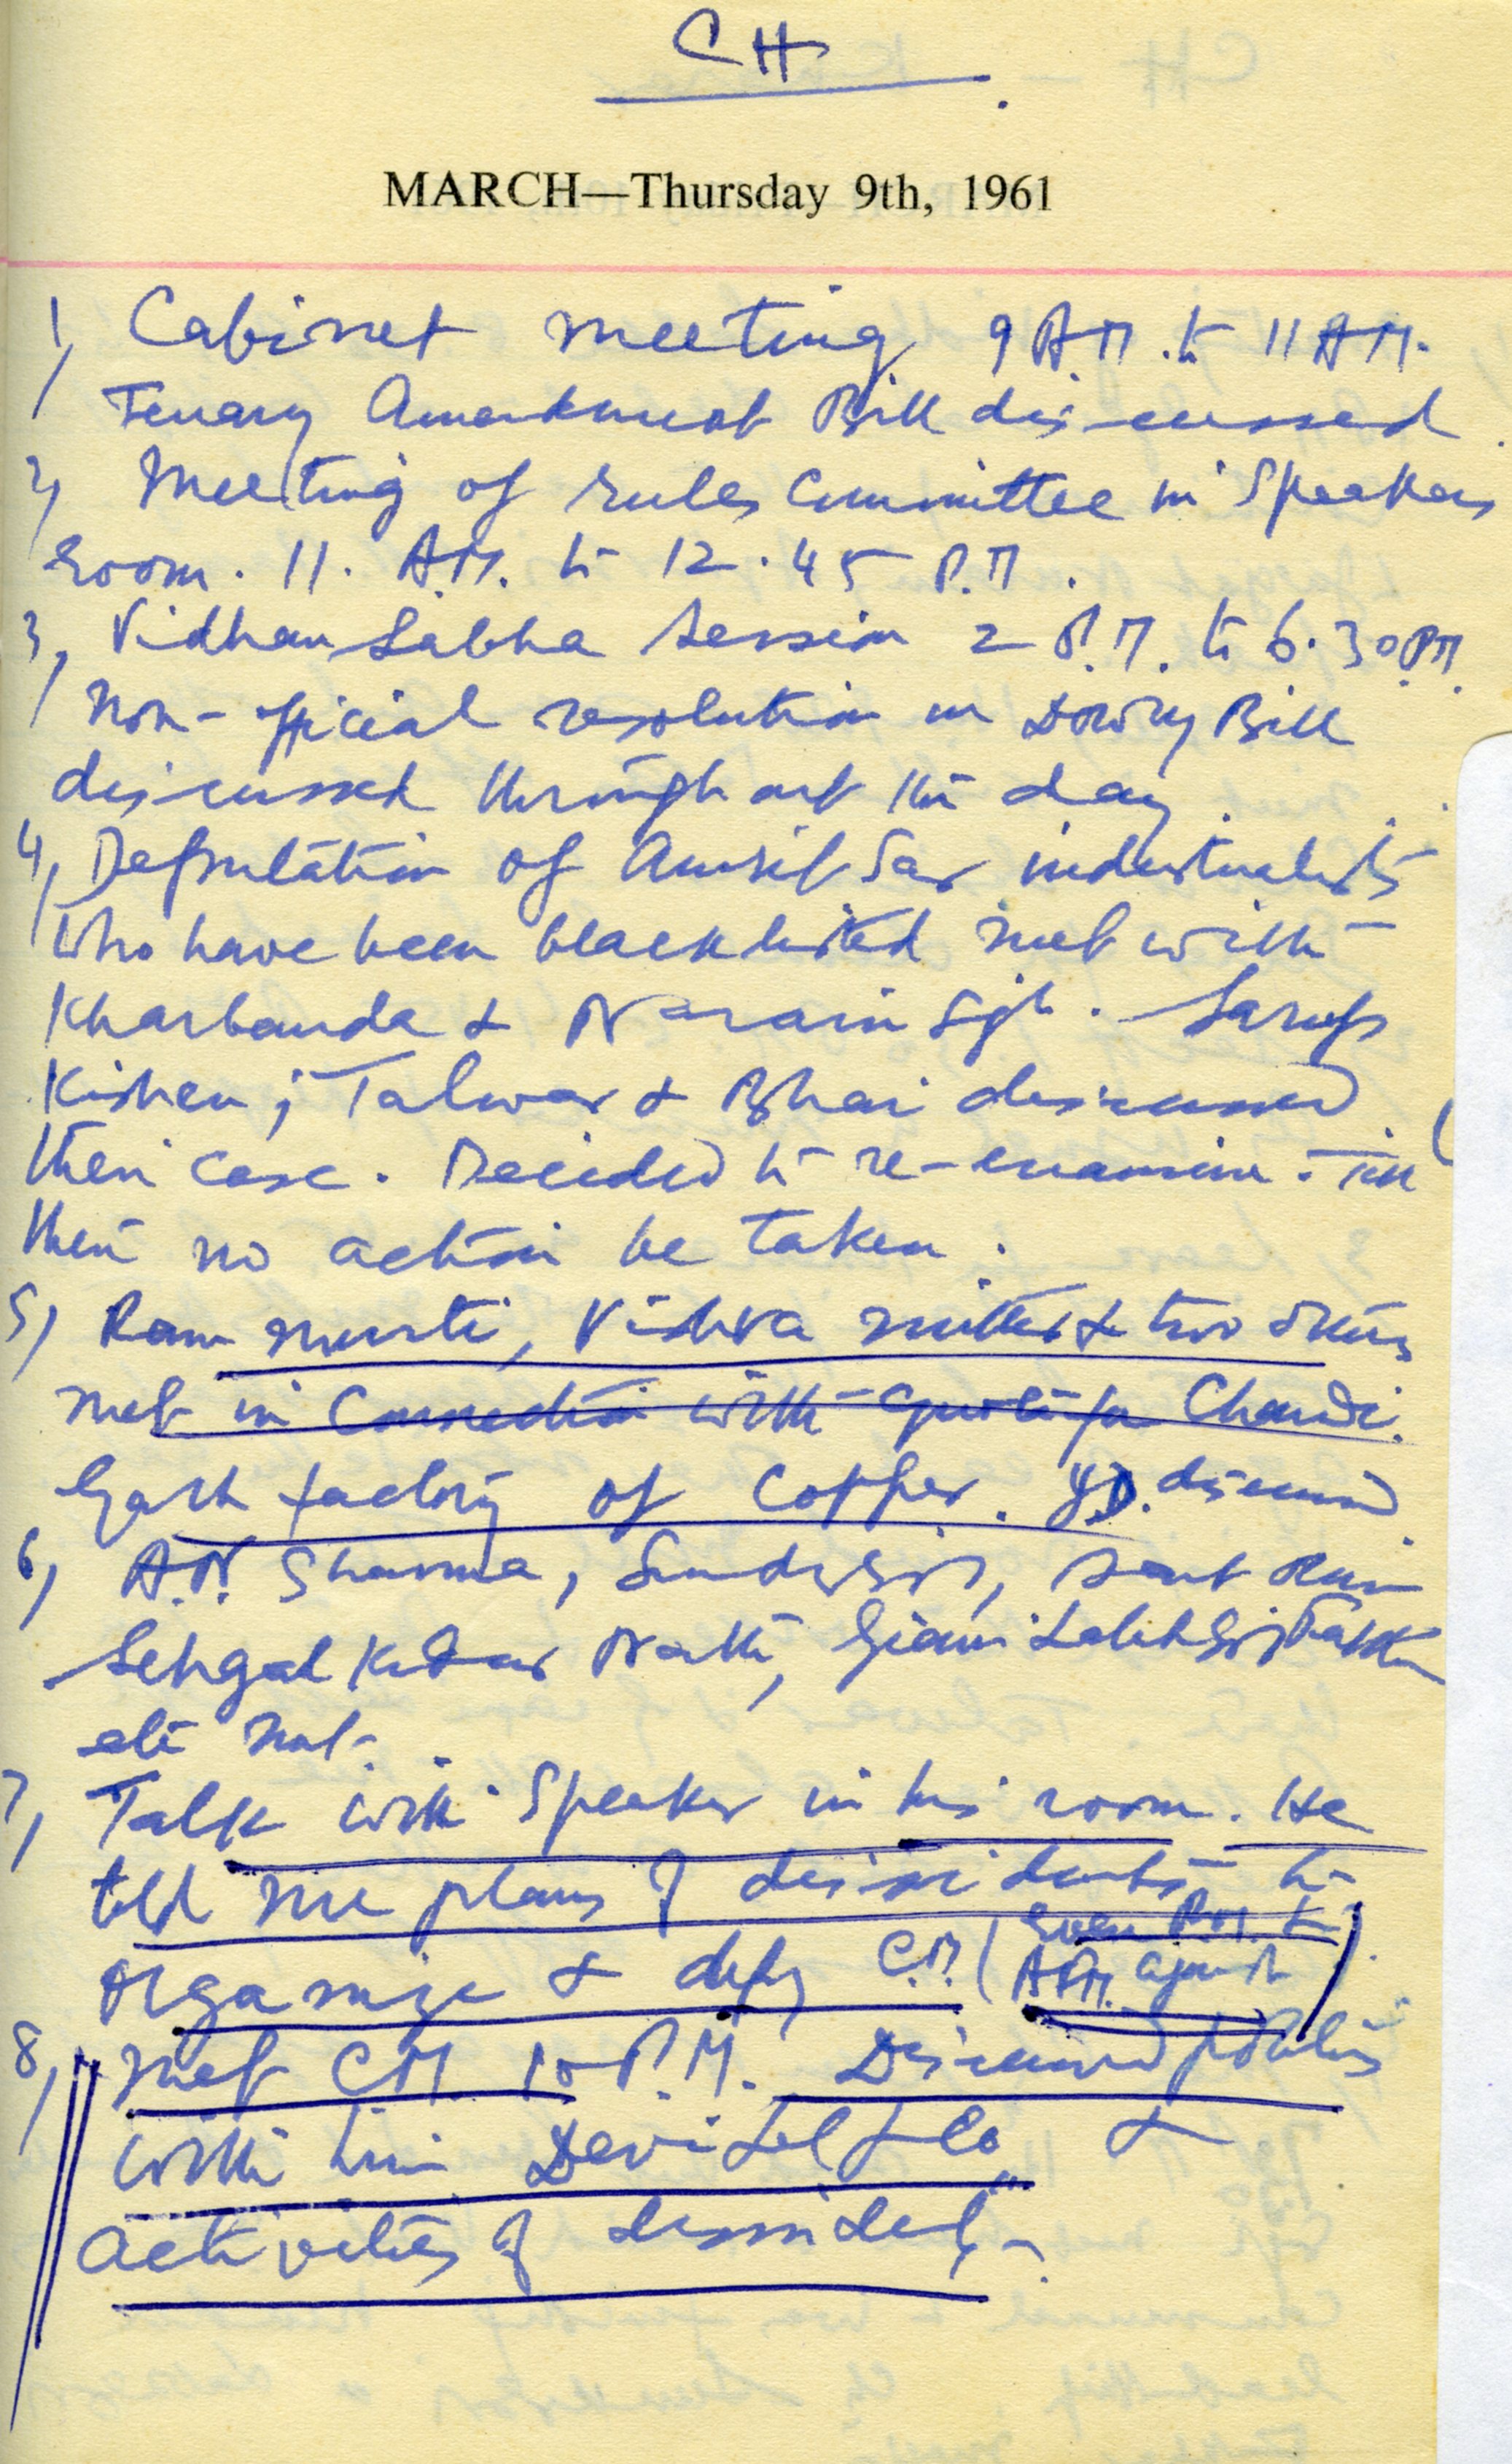 CH
MARCH—Thursday 9th, 1961
1, Cabinet meeting 9 A.M. to 11 AM.
Tenancy Amendment Bill discussed.
2, Meeting of rules Committee in Speakers
room. 11. A.M. to 12.45 P.M.
3, Vidhan Sabha Session 2 P.M. to 6.30 PM.
Non-official resolution on Dowry Bill
discussed throughout the day.
4, Deputation of Amritsar industrialists
who have been blacklisted met with
Kharbanda & Narain Sgh. Sarup
Kishen, Talwar & Bhai discussed
their case. Decided to re-examine. Till
then no action be taken.
5, Ram murti, Vishva mitter & two others
met in Connection with quota for Chandi.
Garh factory of Copper. discussed
6, A.N. Sharma, Sant Ram
Sehgal Kedar Nath, Giani
etc met.
7, Talk with Speaker in his room. He
told me plans of dissidents to
organize & defy C.M. (even
against)
8, Met CM 10 P.M. Discussed politics
with him Devi Lal & Co &
activities of dissidents.